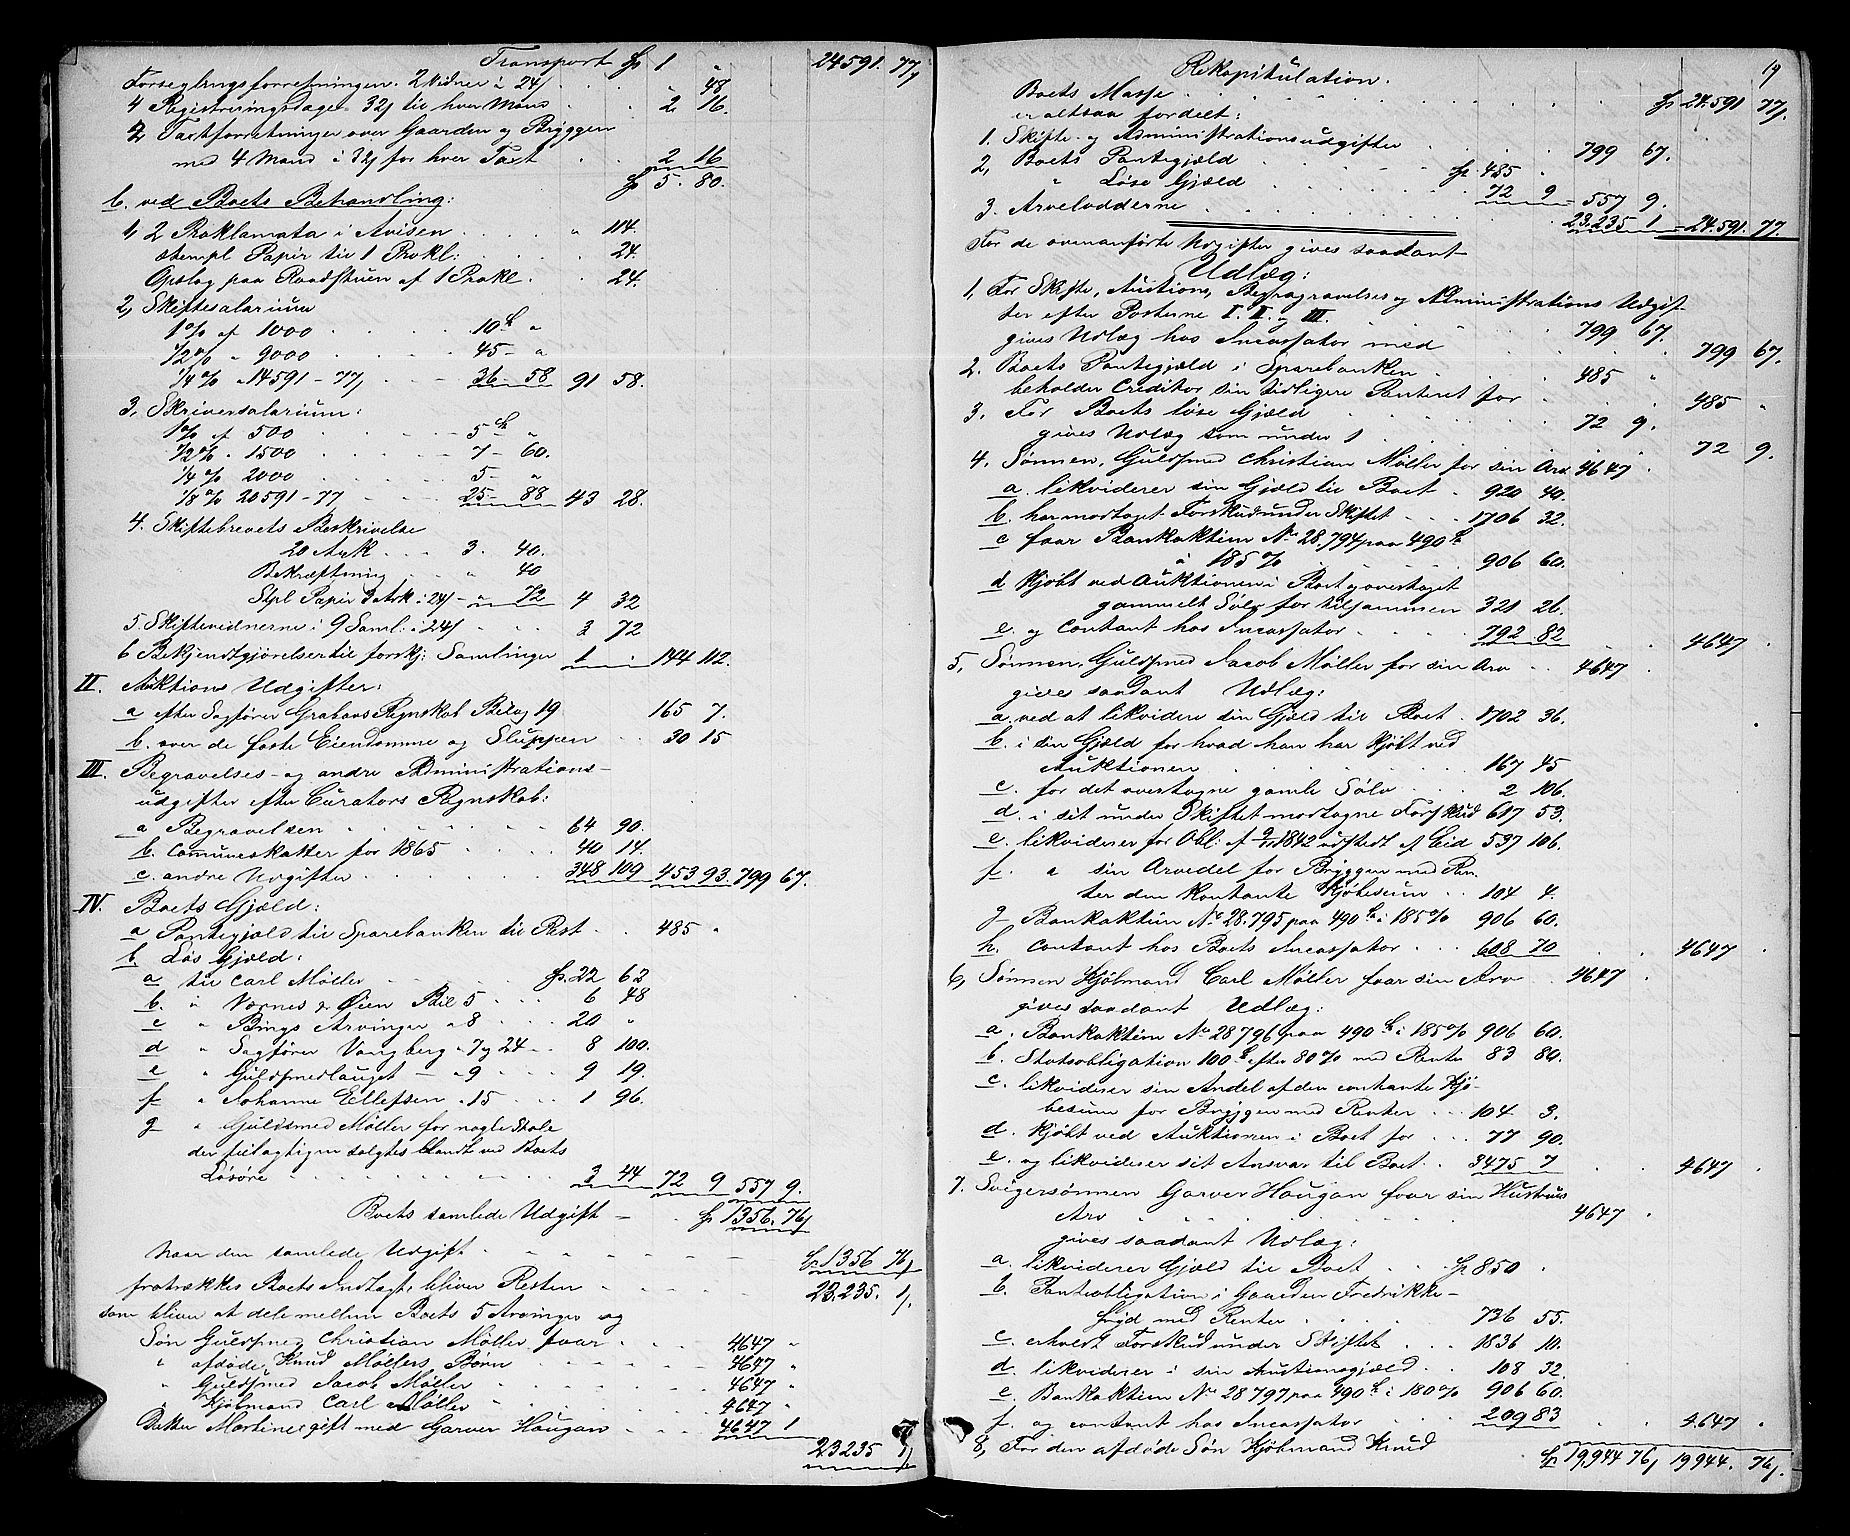 Transport Sp 1 " 24591. 77/
Forseglingsforretningen. 2 Vidner i 24/ . . . " 48
4 Registreringsdage. 32/ til hver Mand . . 2. 16.
4, Taxtforretninger over Gaarden og Bryggen
med 4 Mand i 32/ for hver Taxt . . . 2 16
Sp 5. 80.
b. ved Boets Behandling:
1, 2 Proklamata i Avisen . . . . " 114.
stempl Papir til 1 Prokl: . . . . . 24.
Opslag paa Raadstuen af 1 Prokl . . 24.
2, Skiftesalarium
1 % af 1000 . . . . . 10 Sp "
1/2 % " 9000 . . . . 45 - "
1/4 % " 14591 - 77/ . . . 36 - 58 91 58.
3, Skriversalarium:
1 % af 500 . . . . . 5 Sp "
1/2 % . 1500 . . . 7 - 60.
1/4 % 2000 . . . . 5 - "
1/8 % 20591 - 77 . . . 25 - 88 43 28.
4. Skiftebrevets Beskrivelse
20 Ark . . . 3. 40.
Bekræftning . . " 40
Stpl Papir 3 Ark i 24/ - " 72 4 32
5. Skiftevidnerne i 9 Saml: i 24/ . . . 3 72
6 Bekjendtgjørelser til forskj: Samlinger 1 " 144 112.
II. Auktions Udgifter:
a efter Sagfører Grabows Regnskab Bilag 19 165 7.
b. over de faste Eiendomme og Sluppen . . 30 15
III. Begravelses- og andre Administrations-
udgifter efter Curators Regnskab:
a Begravelsen . . . . . . 64 90.
b. Communeskatter for 1865 . . . . 40 14.
c. andre Udgifter . . . . . . 348 109 453 93. 799 67.
IV. Boets Gjæld:
a Pantegjæld til Sparebanken til Rest . . 485 "
b. Løs Gjæld:
a til Carl Møller . . . . Sp. 22 62
b. " Værnes & Øien Bil 5 . . . 6 48
c " Bings Arvinger " 8 . . . 20 "
d " Sagfører Vangberg " 7 og 24 . . 8 100.
e " Guldsmedlauget - " 9 . . . 9 19.
f " Johanne Ellefsen " 15 . . . 1 96.
g " Guldsmed Møller for nogle Stole
der feilagtigen solgtes blandt ved Boets
Løsøre . . . . . . . . . 3 44 72 9 557 9.
Boets samlede Udgift - . . Sp 1356. 76/
Naar den samlede Udgift . . . . . . Sp. 1356 76/
fratrækkes Boets Indtægt, bliver Resten . . . . 23.235. 1/.
som bliver at dele mellem Boets 5 Arvinger og
Søn Guldsmed Christian Møller faar . . . 4647 "
" afdøde Knud Møllers Børn . . . . . 4647 "
" Guldsmed Jacob Møller . . . . . . 4647 "
" Hjølmand Carl Møller . . . . . . 4647 "
Datter Martine gift med Garver Haugan . . . 4647 1
23235 1/
19
Rekapitulation.
Boets Masse . . . . . . . . . . Sp 24.591 77/.
er altsaa fordelt:
1. Skifte- og Administrationsudgifter . . . . 799 67.
2, Boets Pantegjæld . . . . . Sp. 485 "
" Løse Gjæld . . . . . . 72 9 557 9.
3. Arvelodderne . . . . . . . . . 23.235 1 24.591. 77.
For de ovenanførte Udgifter gives saadant
Udlæg:
1, For Skifte, Auctions, Begragravelses og Administrations Udgif-
ter efter Posterne I. II. og III. . . .
gives Udlæg hos Incassator med . . . 799 67. 799 67.
2. Boets Pantegjæld i Sparebanken . . . 485 "
beholder Creditor sin tidligere Panteret for . . . 485 "
3, For Boets løse Gjæld . . . . . . 72 9.
gives Udlæg som under 1 . . . . . 72 9.
4. Sønnen, Guldsmed Christian Møller for sin Arv 4647 .
a. likviderer sin Gjæld til Boet . 920 40.
b. har modtaget Forskud under Skiftet . . . 1706 32.
c faar Bankaktien No 28.794 paa 490 Sp
à 185 % . . . . . 906 60.
d Kjøbt ved Auktionen i Boet og overtaget
gammelt Sølv for tilsammen 321 26.
e. og contant hos Incassator . . . . 792 82 . . 4647 .
5, Sønnen, Guldsmed Jacob Møller for sin Arv . . 4647 .
gives saadant Udlæg:
a. ved at likvidere sin Gjæld til Boet . 1702 36.
b. i sin Gjæld for hvad han har kjøbt ved
Auktionen . . . . . . . 167 45
c. for det overtagne gamle Sølv . . . 2 106.
d. i sit under Skiftet modtagne Forskud 617 53.
e. likviderer for Obl: af 9/11 1842 udstedt af Eid 537 106.
f. " sin Arvedel for Bryggen med Ren-
ter den kontante Kjøbesum . . 104 4.
g Bankaktien No 28.795 paa 490 Sp i 185 % 906 60.
h. contant hos Boets Incassator . . . 608 70 . . 4647 .
6, Sønnen Hjølmand Carl Møller faar sin Arv . . 4647 .
gives saadant Udlæg:
a. Bankaktien No 28796 paa 490 Sp i 185 % 906 60.
b. Statsobligation 100 Sp efter 80 % med Renter 83 80.
c. likviderer sin Andel af den contante Kjø-
besum for Bryggen med Renter . . . 104 3.
d. Kjøbt ved Auktionen i Boet for . . . 77 90.
e. og likviderer sit Ansvar til Boet . . 3475 7 . . 4647 .
7. Svigersønnen Garver Haugan faar sin Hustrues
Arv . . . . . . . . . . 4647 .
gives saadant Udlæg:
a. likviderer Gjæld til Boet . . Sp 850 .
b. Panteobligation i Gaarden Fredrikke-
lyd med Renter . . . . . 736 55.
c. erholdt Forskud under Skiftet . . . 1836 10.
d. likviderer i sin Auctionsgjæld . . . 108 32.
e. Bankaktien No 28797 paa 490 Sp i 180 % 906 60.
f. og contant hos Incassator . . . 209 83 . . 4.647 .
8, For den afdøde Søn Hjølmand Knud
Sp 19,944 76/ 19944. 76/.